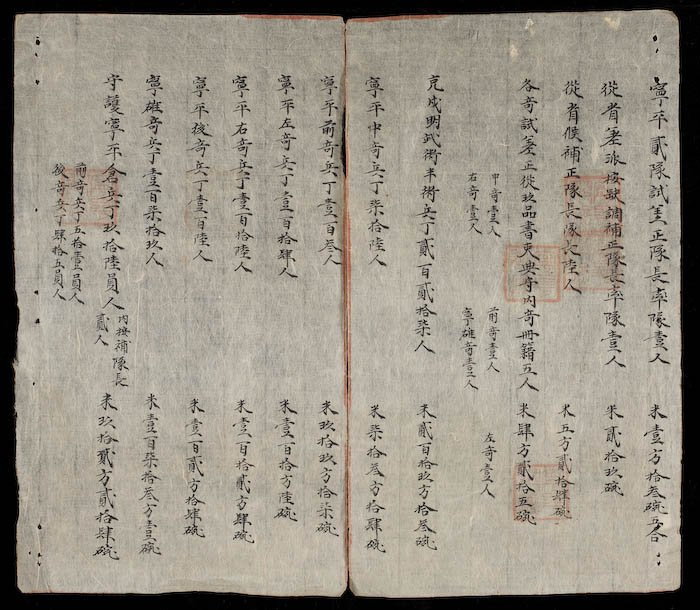 寧平貳隊試差正隊長率隊壹人
米壹方拾叁碗五合
從省差派按缺調補正隊長率隊壹人
米貳拾玖碗
從省候補正隊長隊次陸人
米五方貳拾肆碗
各奇試差正從玖品書吏典守內奇冊籍五人
中奇壹人
右奇壹人
前奇壹人
寧雄奇壹人
左奇壹人
米肆方貳拾五碗
克成明武衛半衛兵丁貳百貳拾柒人
米貳百拾玖方拾叁碗
寧平中奇兵丁柒拾陸人
米柒拾叁方拾肆碗
寧平前奇兵丁壹百叁人
米玖拾玖方拾柒碗
寧平左奇兵丁壹百拾肆人
米壹百拾方陸碗
寧平右奇兵丁壹百拾陸人
米壹百拾貳方肆碗
寧平後奇兵丁壹百陸人
米壹百貳方拾肆碗
寧雄奇兵丁壹百柒拾玖人
米壹百柒拾叁方壹碗
守護寧平倉兵丁玖拾陸員人
內按補隊長貳人
前奇兵丁五拾壹員人
後奇兵丁肆拾五員人
米玖拾貳方貳拾肆碗